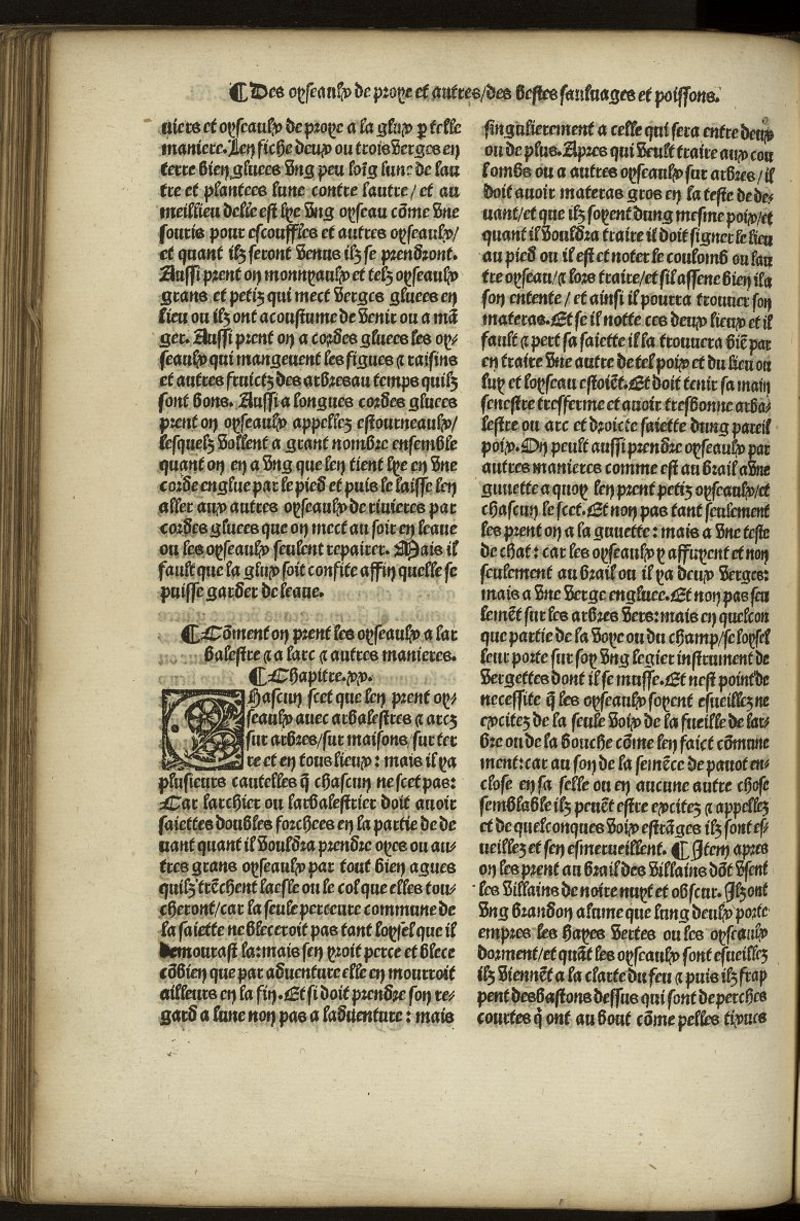 ¶ Des oyseaulx de proye et autres/des bestes sauluages et poissons.
niers et oyseaulx de proye a la glux p telle
maniere. Len fiche deux ou trois verges en
terre bien gluees vng peu loĩg lune de lau
tre et plantees lune contre lautre/ et au
meillieu delle est lye vng oyseau cõme vne
souris pour escouffles et autres oyseaulx/
et quant ilz seront venus ilz se prendront.
Aussi prent on monnyaulx et telz oyseaulx
grans et petiz qui mect verges gluees en
lieu ou ilz ont acoustume de venir ou a mã
ger. Aussi prent on a cordes gluees les oy⸗
seaulx qui mangeuent les figues ⁊ raisins
et autres fruictz des arbresau temps quilz
sont bons. Aussi a longues cordes gluees
prent on oyseaulx appellez estourneaulx/
lesquelz vollent a grant nombre ensemble
quant on en a vng que len tient lye en vne
corde englue par le pied et puis le laisse len
aller aux autres oyseaulx de riuieres par
cordes gluees que on mect au soir en leaue
ou les oyseaulx seulent repairer. Mais il
fault que la glux soit confite affin quelle se
puisse garder de leaue.
¶ Cõment on prent les oyseaulx a lar
balestre ⁊ a larc ⁊ autres manieres.
¶ Chapitre.xx.
Chascun scet que len prent oy⸗
seaulx auec arbalestres ⁊ arcz
sur arbres/sur maisons/sur ter
re et en tous lieux: mais il ya
plusieurs cautelles q̃ chascun ne scet pas:
Car larchier ou larbalestrier doit auoir
saiettes doubles forchees en la partie de de
uant quant il vouldra prendre oyes ou au⸗
tres grans oyseaulx par tout bien agues
quilz trẽchent laesle ou le col que elles tou⸗
cheront/car la seule perceure commune de
la saiette ne bleceroit pas tant loysel que il
demourast la: mais sen yroit perce et blece
cõbien que par aduenture elle en mourroit
ailleurs en la fin. Et si doit prendre son re⸗
gard a lune non pas a laduenture: mais
singulierement a celle qui sera entre deux
ou de plus. Apres qui veult traire aux cou
lombs ou a autres oyseaulx sur arbres/il
doit auoir materas gros en la teste de de⸗
uant/et que ilz soyent dung mesme poix/et
quant il vouldra traire il doit signer le lieu
au pied ou il est et noter le coulomb ou lau
tre oyseau/⁊ lors traire/et sil assene bien il a
son entente/ et ainsi il pourra trouuer son
materas. Et se il notte ces deux lieux et il
fault ⁊ pert sa saiette il la trouuera biẽ par
en traire vne autre de tel poix et du lieu ou
luy et loyseau estoiẽt. Et doit tenir sa main
senestre tresferme et auoir tresbonne arba⸗
lestre ou arc et droicte saiette dung pareil
poix. On peult aussi prendre oyseaulx par
autres manieres comme est au brail a vne
guuette a quoy len prent petiz oyseaulx/et
chascun le scet. Et non pas tant seulement
les prent on a la guuette: mais a vne teste
de chat: car les oyseaulx y affuyent et non
seulement au brail ou il ya deux verges:
mais a vne verge engluee. Et non pas seu
lemẽt sur les arbres vers: mais en quelcon
que partie de la voye ou du champ/se loysel
leur porte sur soy vng legier instrument de
vergettes dont il se musse. Et nest point de
necessite q̃ les oyseaulx soyent esueillez ne
excitez de la seule voix de la fueille de lar⸗
bre ou de la bouche cõme len faict cõmune
ment: car au son de la semẽce de pauot en⸗
close en sa selle ou en aucune autre chose
semblable ilz peuẽt estre excitez ⁊ appellez
et de quelconques voix estrãges ilz sont es⸗
ueillez et sen esmerueillent. ¶ Item apres
on les prent au brail des villains dõt vsent
les villains de noire nuyt et obscur. Ilz ont
vng brandon alume que lung deulx porte
empres les hayes vertes ou les oyseaulx
dorment/et quãt les oyseaulx sont esueillez
ilz viennẽt a la clarte du feu ⁊ puis ilz frap
pent desbastons dessus qui sont de perches
courtes q̃ ont au bout cõme pelles tixues